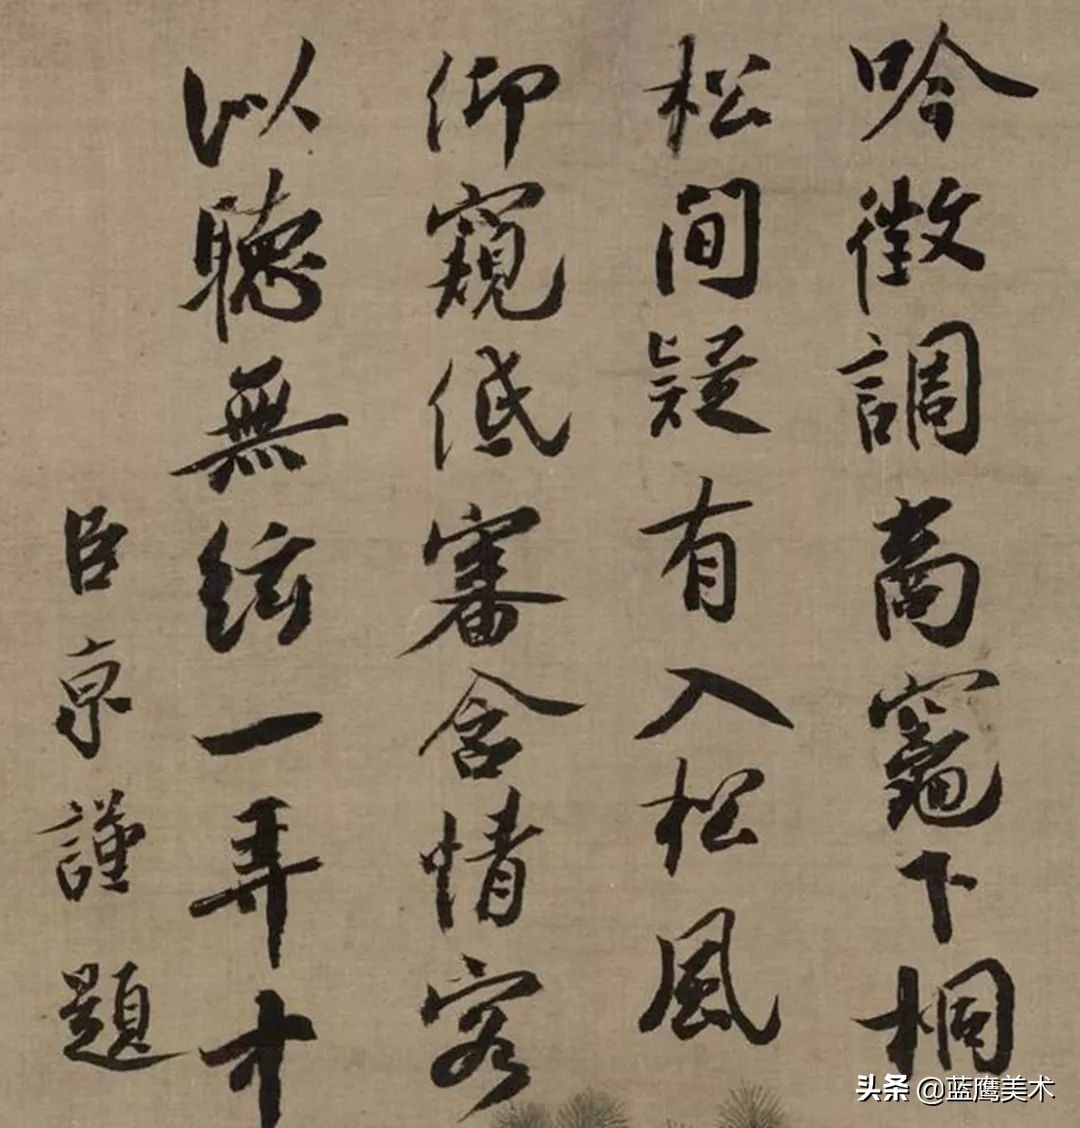 吟徵調商竈下桐
松間疑有入松風
仰窺低審含情客
以聽無絃一弄中
臣京謹題
头条 @蓝鹰美术